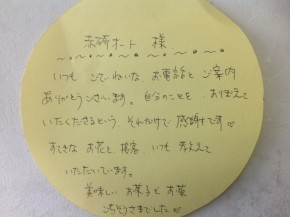 赤崎オート 様
いつも ごていねいな、お電話と ご案内
ありがとうございます。自分のことを おぼえて
いたくださるという、それだけで 感謝です♡
すてきな お花と 接客、いつも 考えて
いただいています。
美味しい お菓子と お茶
ごちそうさまでした♡